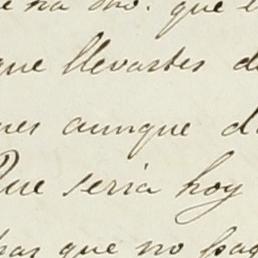 que
que llevastes d
ues aunque d
Que seria hoy
que no pag